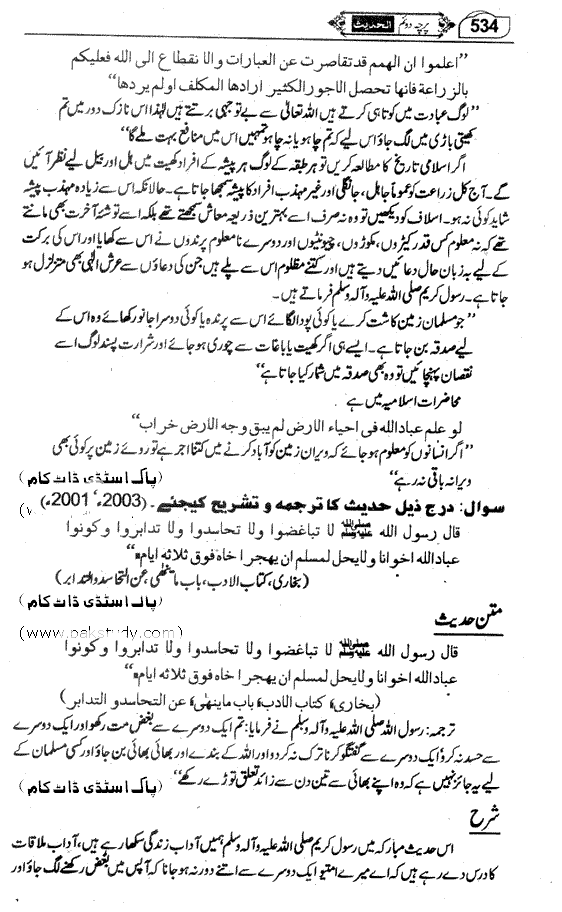 534 پرچہ دوئم الحدیث
”اعلموا ان الهمم قد تقاصرت عن العبارات والا نقطاع الى الله فعليكم
بالزراعة فانها تحصل الاجور الكثير ارادها المكلف اولم يردها“
”لوگ عبادت میں کوتاہی کرتے ہیں اللہ تعالیٰ سے بے توجہی برتتے ہیں لہٰذا اس نازک دور میں تم
کھیتی باڑی میں لگ جاؤ اس لیے کہ تم چاہو یا نہ چاہو تمہیں اس میں منافع بہت ملے گا“
اگر اسلامی تاریخ کا مطالعہ کریں تو ہر طبقہ کے لوگ ہر پیشہ کے افراد کھیت میں ہل اور بیل لیے نظر آئیں
گے۔ آج کل زراعت کو عموماً جاہل، جانگلی اور غیر مہذب افراد کا پیشہ سمجھا جاتا ہے۔ حالانکہ اس سے زیادہ مہذب پیشہ
شاید کوئی نہ ہو۔ اسلاف کو دیکھیں تو وہ نہ صرف اسے بہترین ذریعہ معاش سمجھتے تھے بلکہ اسے توشۂ آخرت بھی مانتے
تھے کہ نہ معلوم کس قدر کیڑوں، مکوڑوں، چیونٹیوں اور دوسرے نامعلوم پرندوں نے اس سے کھایا اور اس کی برکت
کے لیے بہ زبان حال دعائیں دیتے ہیں اور کتنے مظلوم اس سے پلے ہیں جن کی دعاؤں سے عرش الٰہی بھی متزلزل ہو
جاتا ہے۔ رسول کریم صلی اللہ علیہ وآلہ وسلم فرماتے ہیں۔
”جو مسلمان زمین کاشت کرے یا کوئی پودا لگائے اس سے پرندہ یا کوئی دوسرا جانور کھائے وہ اس کے
لیے صدقہ بن جاتا ہے۔ ایسے ہی اگر کھیت یا باغات سے چوری ہو جائے اور شرارت پسند لوگ اسے
نقصان پہنچائیں تو وہ بھی صدقہ میں شمار کیا جاتا ہے“
محاضرات اسلامیہ میں ہے
لو علم عباد الله فى احياء الارض لم يبق وجه الارض خراب“
”اگر انسانوں کو معلوم ہو جائے کہ ویران زمین کو آباد کرنے میں کتنا اجر ہے تو روئے زمین پر کوئی بھی
ویرانہ باقی نہ رہے“ (پاک اسٹڈی ڈاٹ کام)
سوال: درج ذیل حدیث کا ترجمہ و تشریح کیجئے۔ (2003ء، 2001ء)
قال رسول الله ﷺ لا تباغضوا ولا تحاسدوا ولا تدابروا وكونوا
عبادالله اخوانا ولا يحل لمسلم ان يهجر اخاه فوق ثلاثه ايام“
(بخاری، کتاب الادب، باب ماینھٰی عن التحاسد والتدابر)
(پاک اسٹڈی ڈاٹ کام)
متن حدیث
(www.pakstudy.com)
قال رسول الله ﷺ لا تباغضوا ولا تحاسدوا ولا تدابروا وكونوا
عبادالله اخوانا ولا يحل لمسلم ان يهجر اخاه فوق ثلاثه ايام“
(بخاری، کتاب الادب، باب ماینھٰی، عن التحاسدو التدابر)
ترجمہ: رسول اللہ صلی اللہ علیہ وآلہ وسلم نے فرمایا: تم ایک دوسرے سے بغض مت رکھو اور ایک دوسرے
سے حسد نہ کرو ایک دوسرے سے گفتگو کرنا ترک نہ کر دو اور اللہ کے بندے اور بھائی بھائی بن جاؤ اور کسی مسلمان کے
لیے یہ جائز نہیں ہے کہ وہ اپنے بھائی سے تین دن سے زائد تعلق توڑے رکھے“ (پاک اسٹڈی ڈاٹ کام)
شرح
اس حدیث مبارکہ میں رسول کریم صلی اللہ علیہ وآلہ وسلم ہمیں آداب زندگی سکھا رہے ہیں، آداب ملاقات
کا درس دے رہے ہیں کہ اے میرے امتیو! ایک دوسرے سے اتنے دور نہ ہو جانا کہ آپس میں بغض رکھنے لگ جاؤ اور